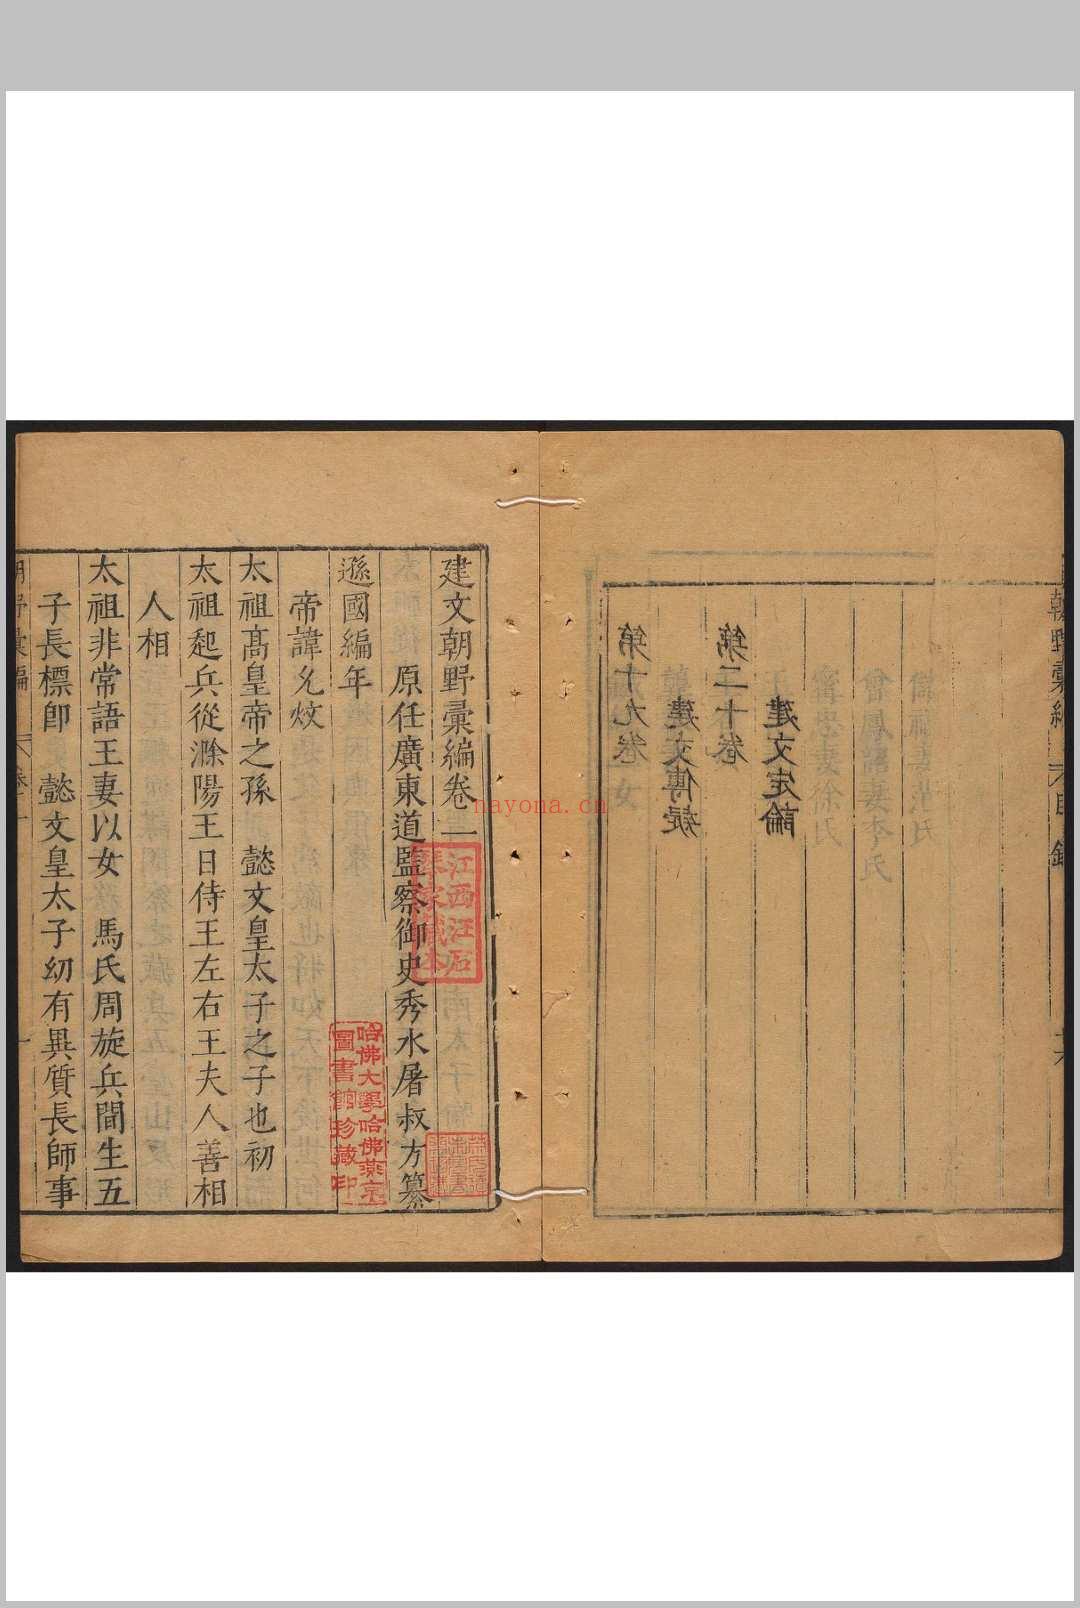 第二十卷
建文定論
第十九卷
建文傳疑
建文朝野彙編卷一
原任廣東道監察御史秀水屠叔方纂
遜國編年
帝諱允炆
太祖高皇帝之孫 懿文皇太子之子也初
太祖起兵從滁陽王日侍王左右王夫人善相
人相
太祖非常語王妻以女 馬氏周旋兵間生五
子長標卽 懿文皇太子幼有異質長師事
江西汪石
琴家藏本
哈佛大學哈佛燕京
圖書館珍藏印
nayona.cn